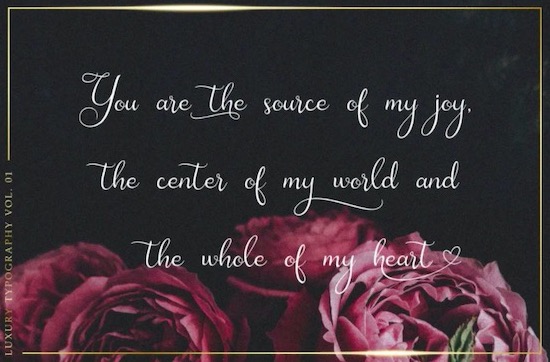 You are the source of my joy,
the center of my world and
the whole of my heart
LUXURY TYPOGRAPHY VOL. 01